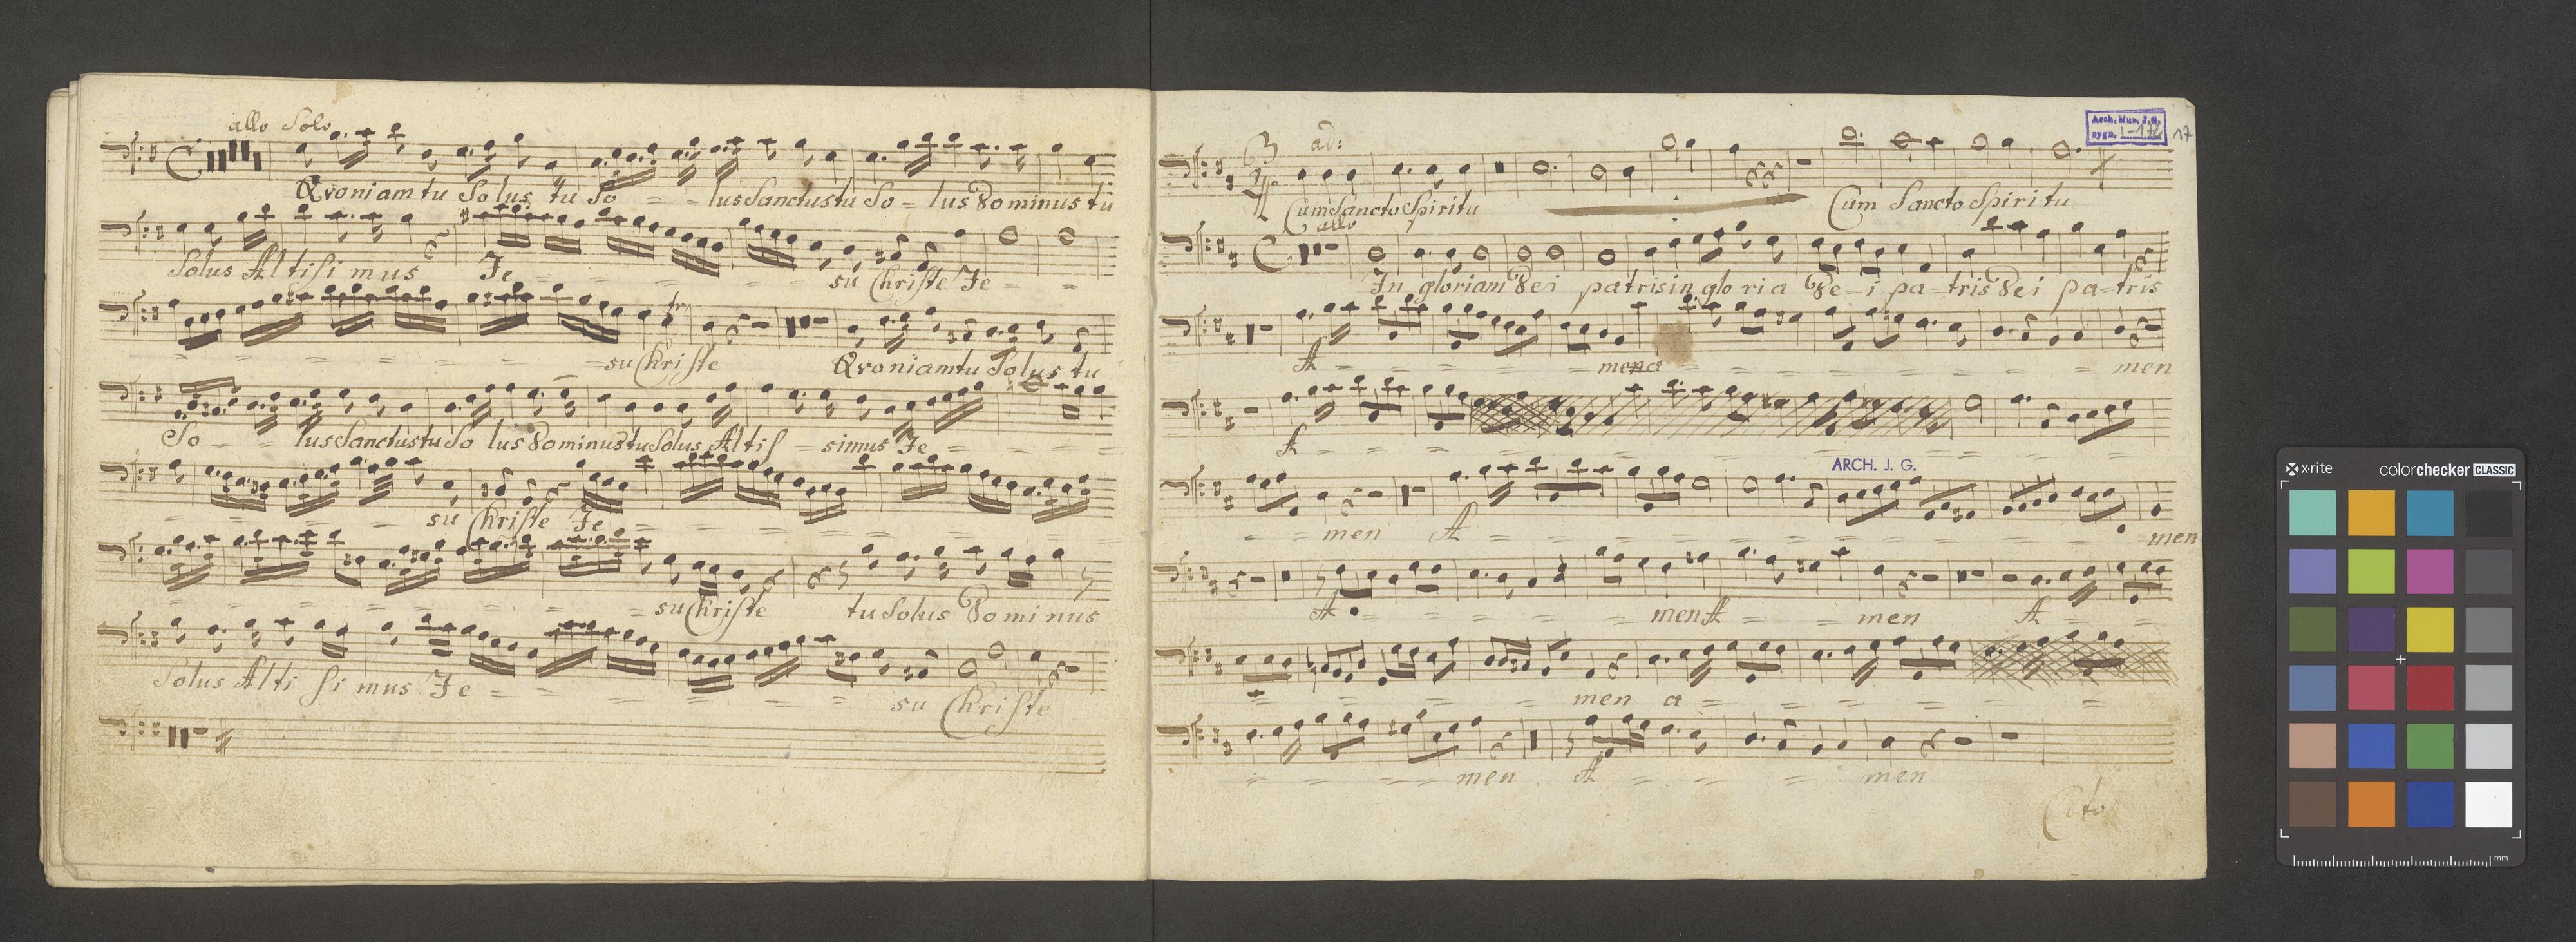 allo Solo
Qvoniam tu Solus tu So = = lus Sanctus tu So = lus Dominus tu
Solus Altisi mus Je = = = = = su Christe Je = =
= = = = = = su Christe Qvoniam tu Solus tu
So = = lus Sanctus tu So lus Dominus tu Solus Altis = simus Je = = = =
= = = = su Christe Je = = = = = =
= = = = = = su Christe tu Solus Dominus
Solus Alti si mus Je = = = = = su Christe
Arch. Mus. J. G.
sygn. I-172
17
ad:
Cum Sancto Spiritu Cum Sancto Spiritu
allo
In gloriam Dei patris in glo ri a De-i pa-tris Dei pa-tris
A = = = = = men a = = = = = = men
A = = = = = = = = =
ARCH. J. G.
= = men A = = = = = = = men
A = = = = = men A = = men A = =
= = = = men a = = = = =
= = = = men A = = = men
Cito
x-rite colorchecker CLASSIC
mm